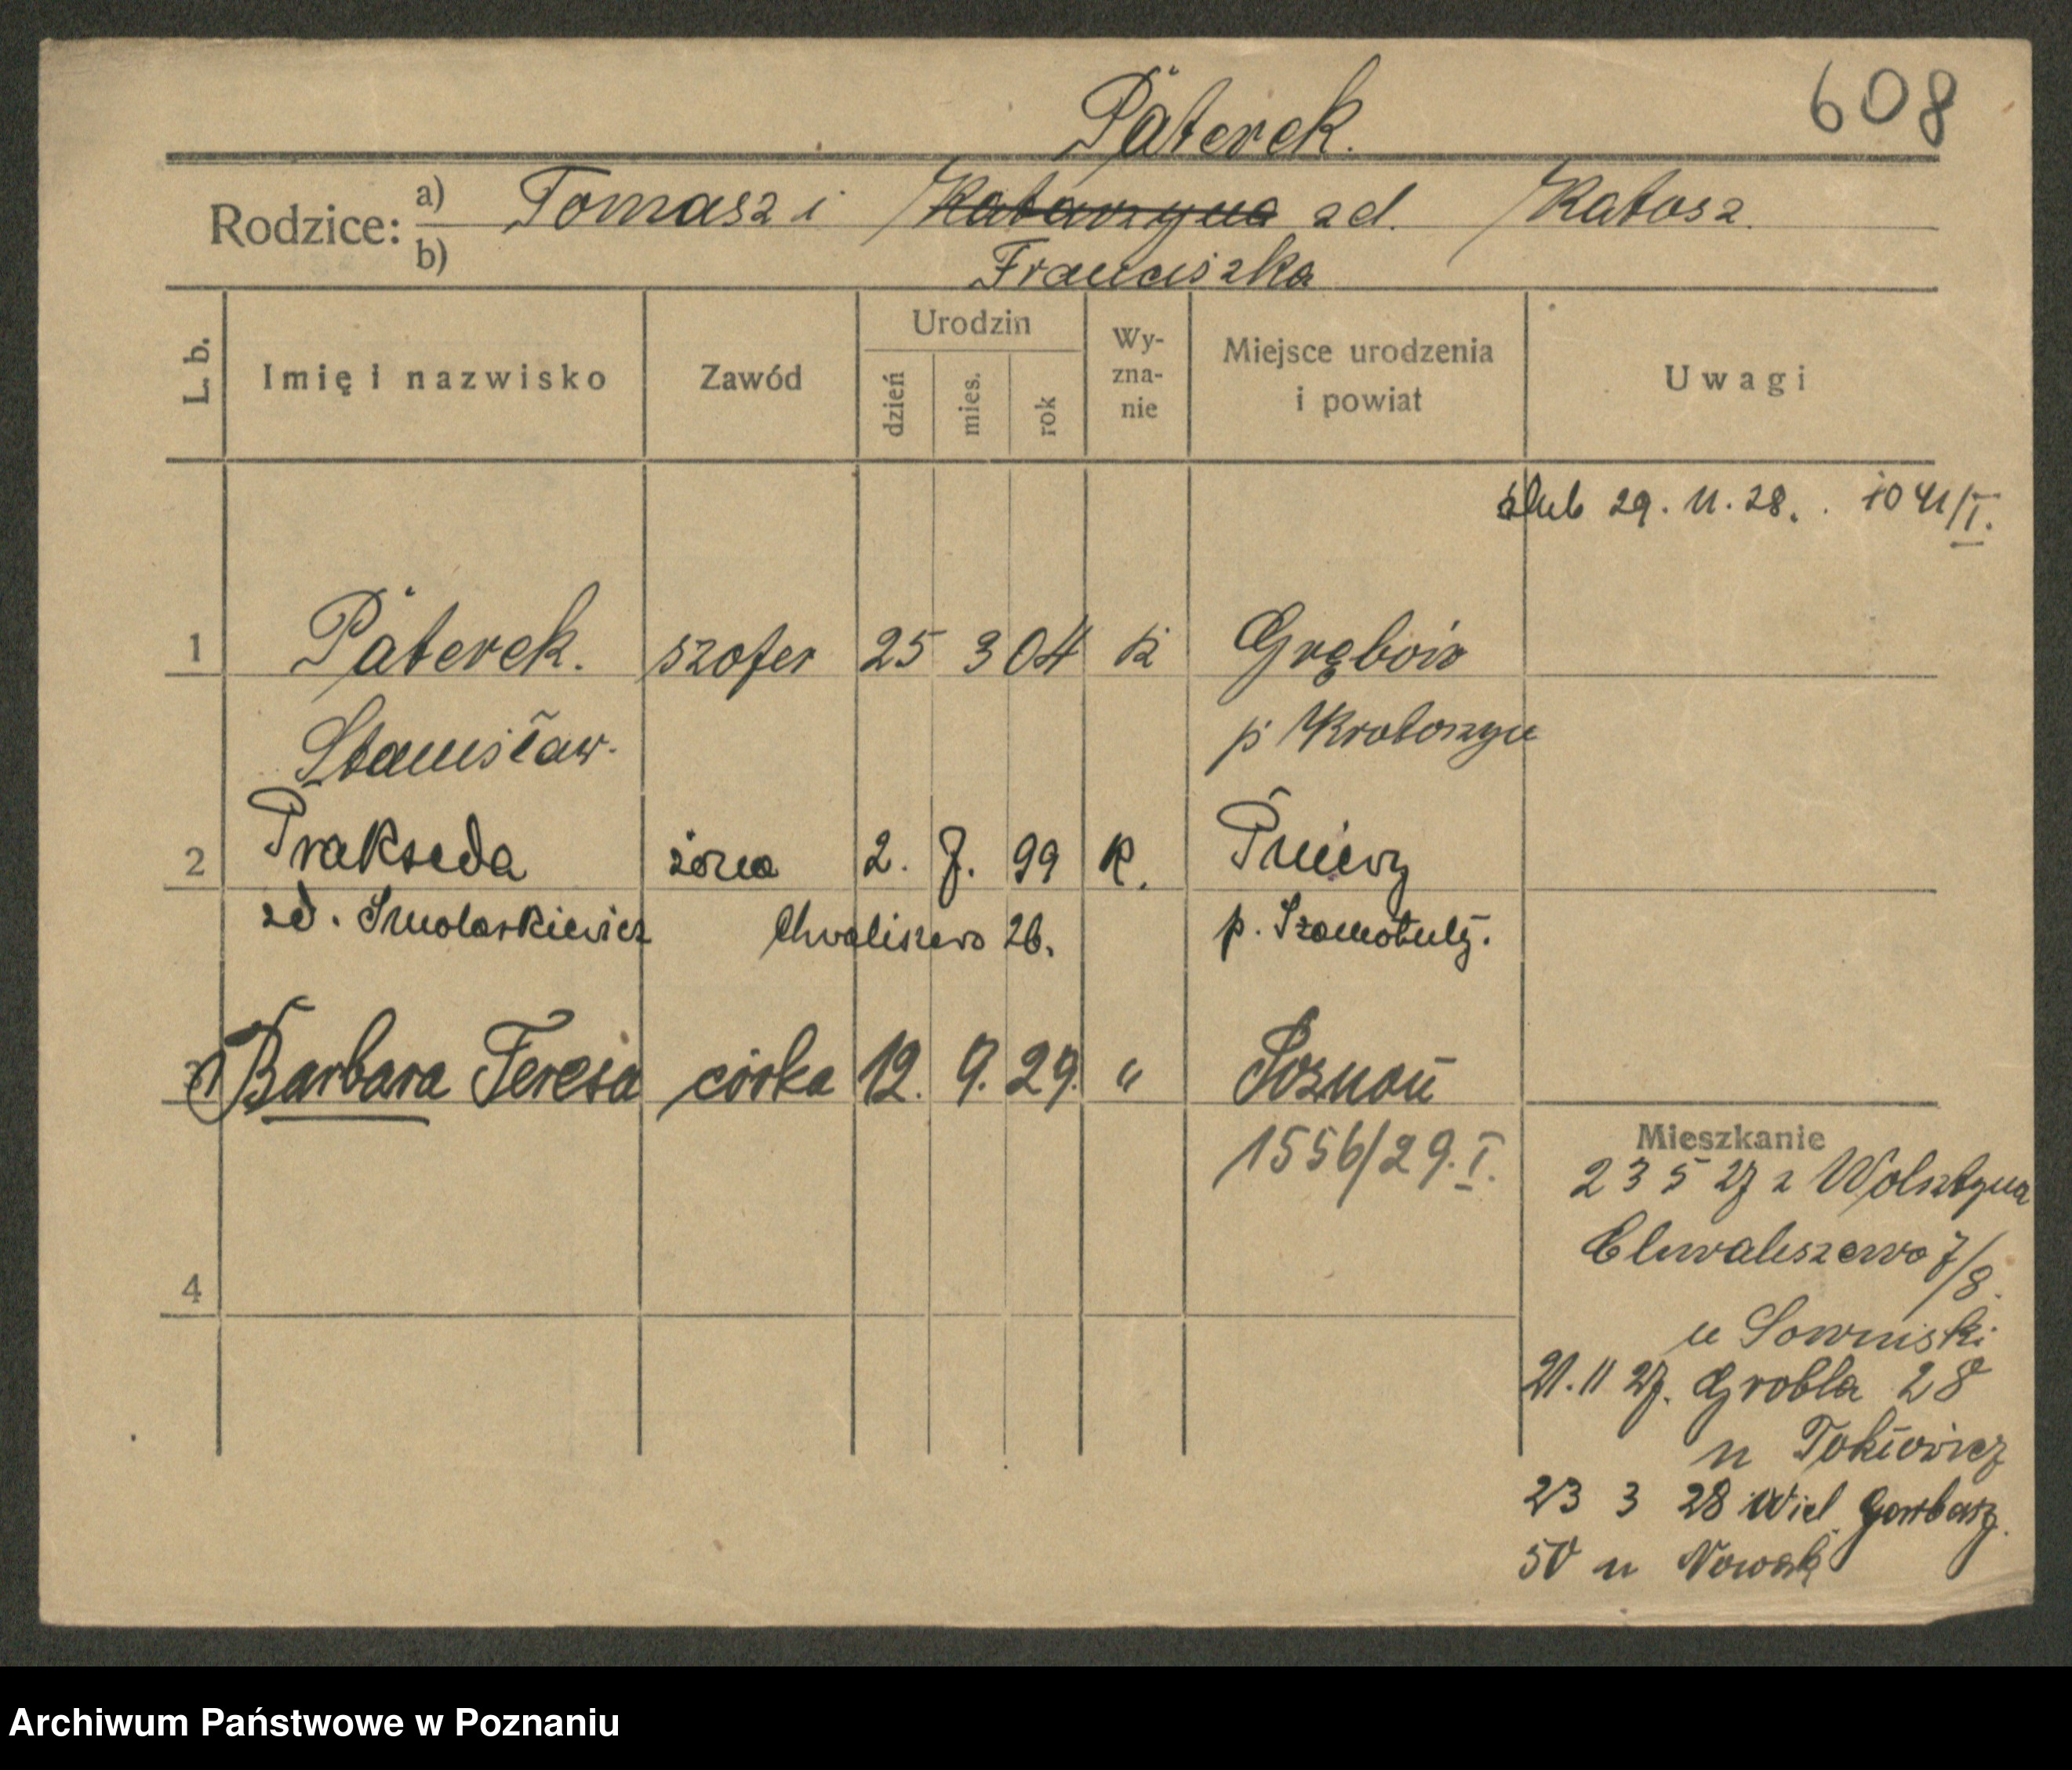 Paterek.
608
Rodzice: a) Tomasz i Katarzyna zd. Ratosz.
b) Franciszka
L. b.
Imię i nazwisko
Zawód
Urodzin
dzień
mies.
rok
Wy-
zna-
nie
Miejsce urodzenia
i powiat
Uwagi
ślub 29. 11. 28. . 1041/I.
1 Paterek. szofer 25 3 04 k Grębów
Stanisław. p Krotoszyn
2 Prakseda żona 2. 7. 99 k. Pniewy
zd. Smolarkiewicz Chwaliszewo 26. p. Szamotuły.
3) Barbara Teresa córka 12. 9. 29. " Poznań
1556/29. I.
Mieszkanie
23 5 27 z Wolsztyna
Chwaliszewo 7/8.
4
u Sowiński
21. 11 27. Grobla 28
u
23 3 28 Wiel. Garbary.
50 u Nowak
Archiwum Państwowe w Poznaniu